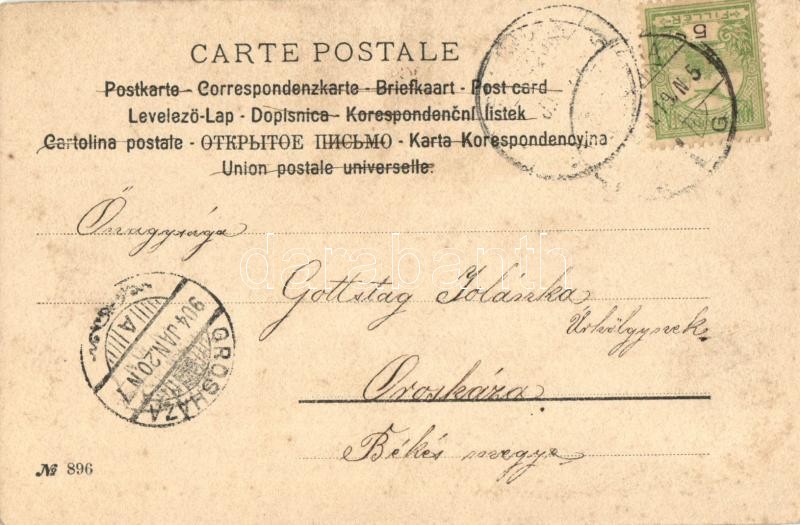 CARTE POSTALE
Postkarte - Correspondenzkarte - Briefkaart - Post card
Levelező-Lap - Dopisnica - Korespondenční listek
Cartolina postale - ОТКРЫТОЕ ПИСЬМО - Karta Korespondencyjna
Union postale universelle.
FILLÉR
5
Őnagysága
Gottstag Jolánka
Úrhölgynek
Orosháza
Békés megye
904 JAN 20 N 7
A
OROSHÁZA
№ 896
darabanth